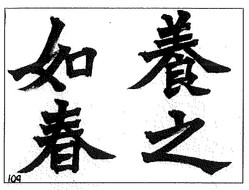 養之
如春
109